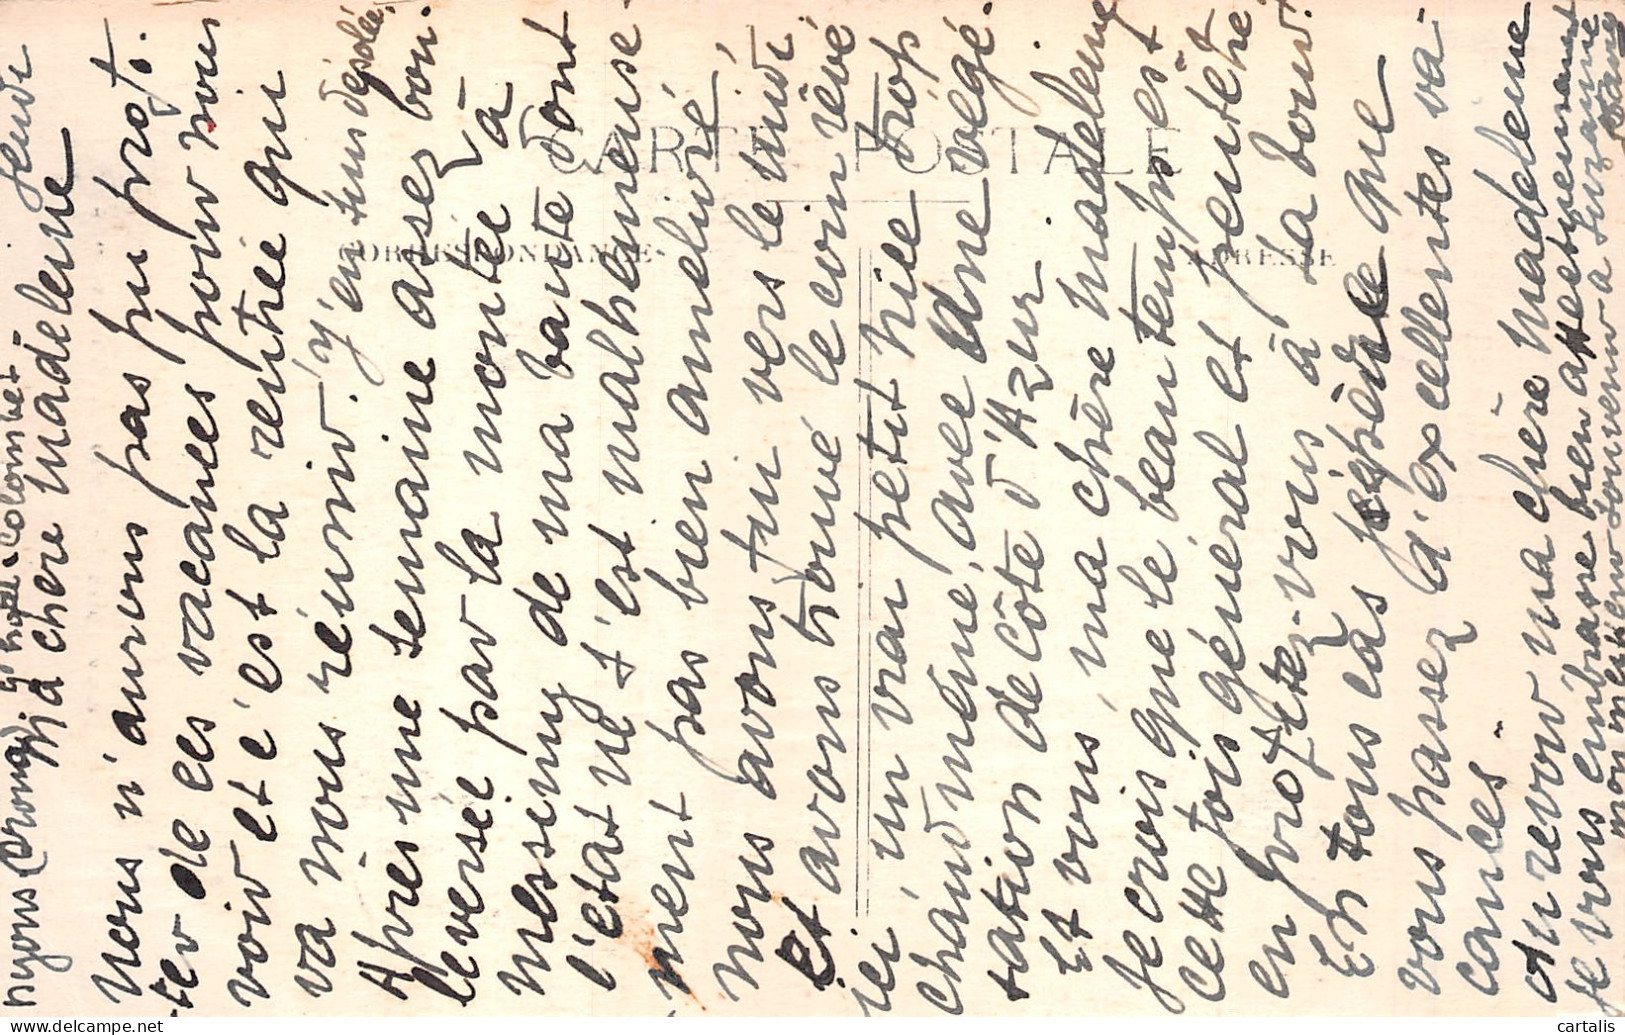 Nyons (Drôme) gd hôtel Colombet jeudi
Ma chère Madeleine
Nous n'aurons pas pu profi-
ter de ces vacances pour nous
voir et c'est la rentrée qui
va nous réunir. j'en suis désolée.
Après une semaine assez bou-
leversée par la montée à
Messimy de ma bante dont
l'état ne s'est malheureuse-
ment pas bien amélioré
nous avons fui vers le midi
Et avons trouvé le coin rêvé
ici un vrai petit nice trop
chaud même, avec une végé-
tation de côte d'Azur
Et vous ma chère Madeleine
Je crois que le beau temps est
cette fois général et peutêtre
en profitez-vous à la bour.
En tous cas j'espère que
vous passez d'excellentes va-
cances-
Au revoir ma chère Madeleine
Je vous embrasse bien affectueusement
mon meilleur souvenir à Suzanne
CARTE POSTALE
CORRESPONDANCE
ADRESSE
delcampe.net
cartalis